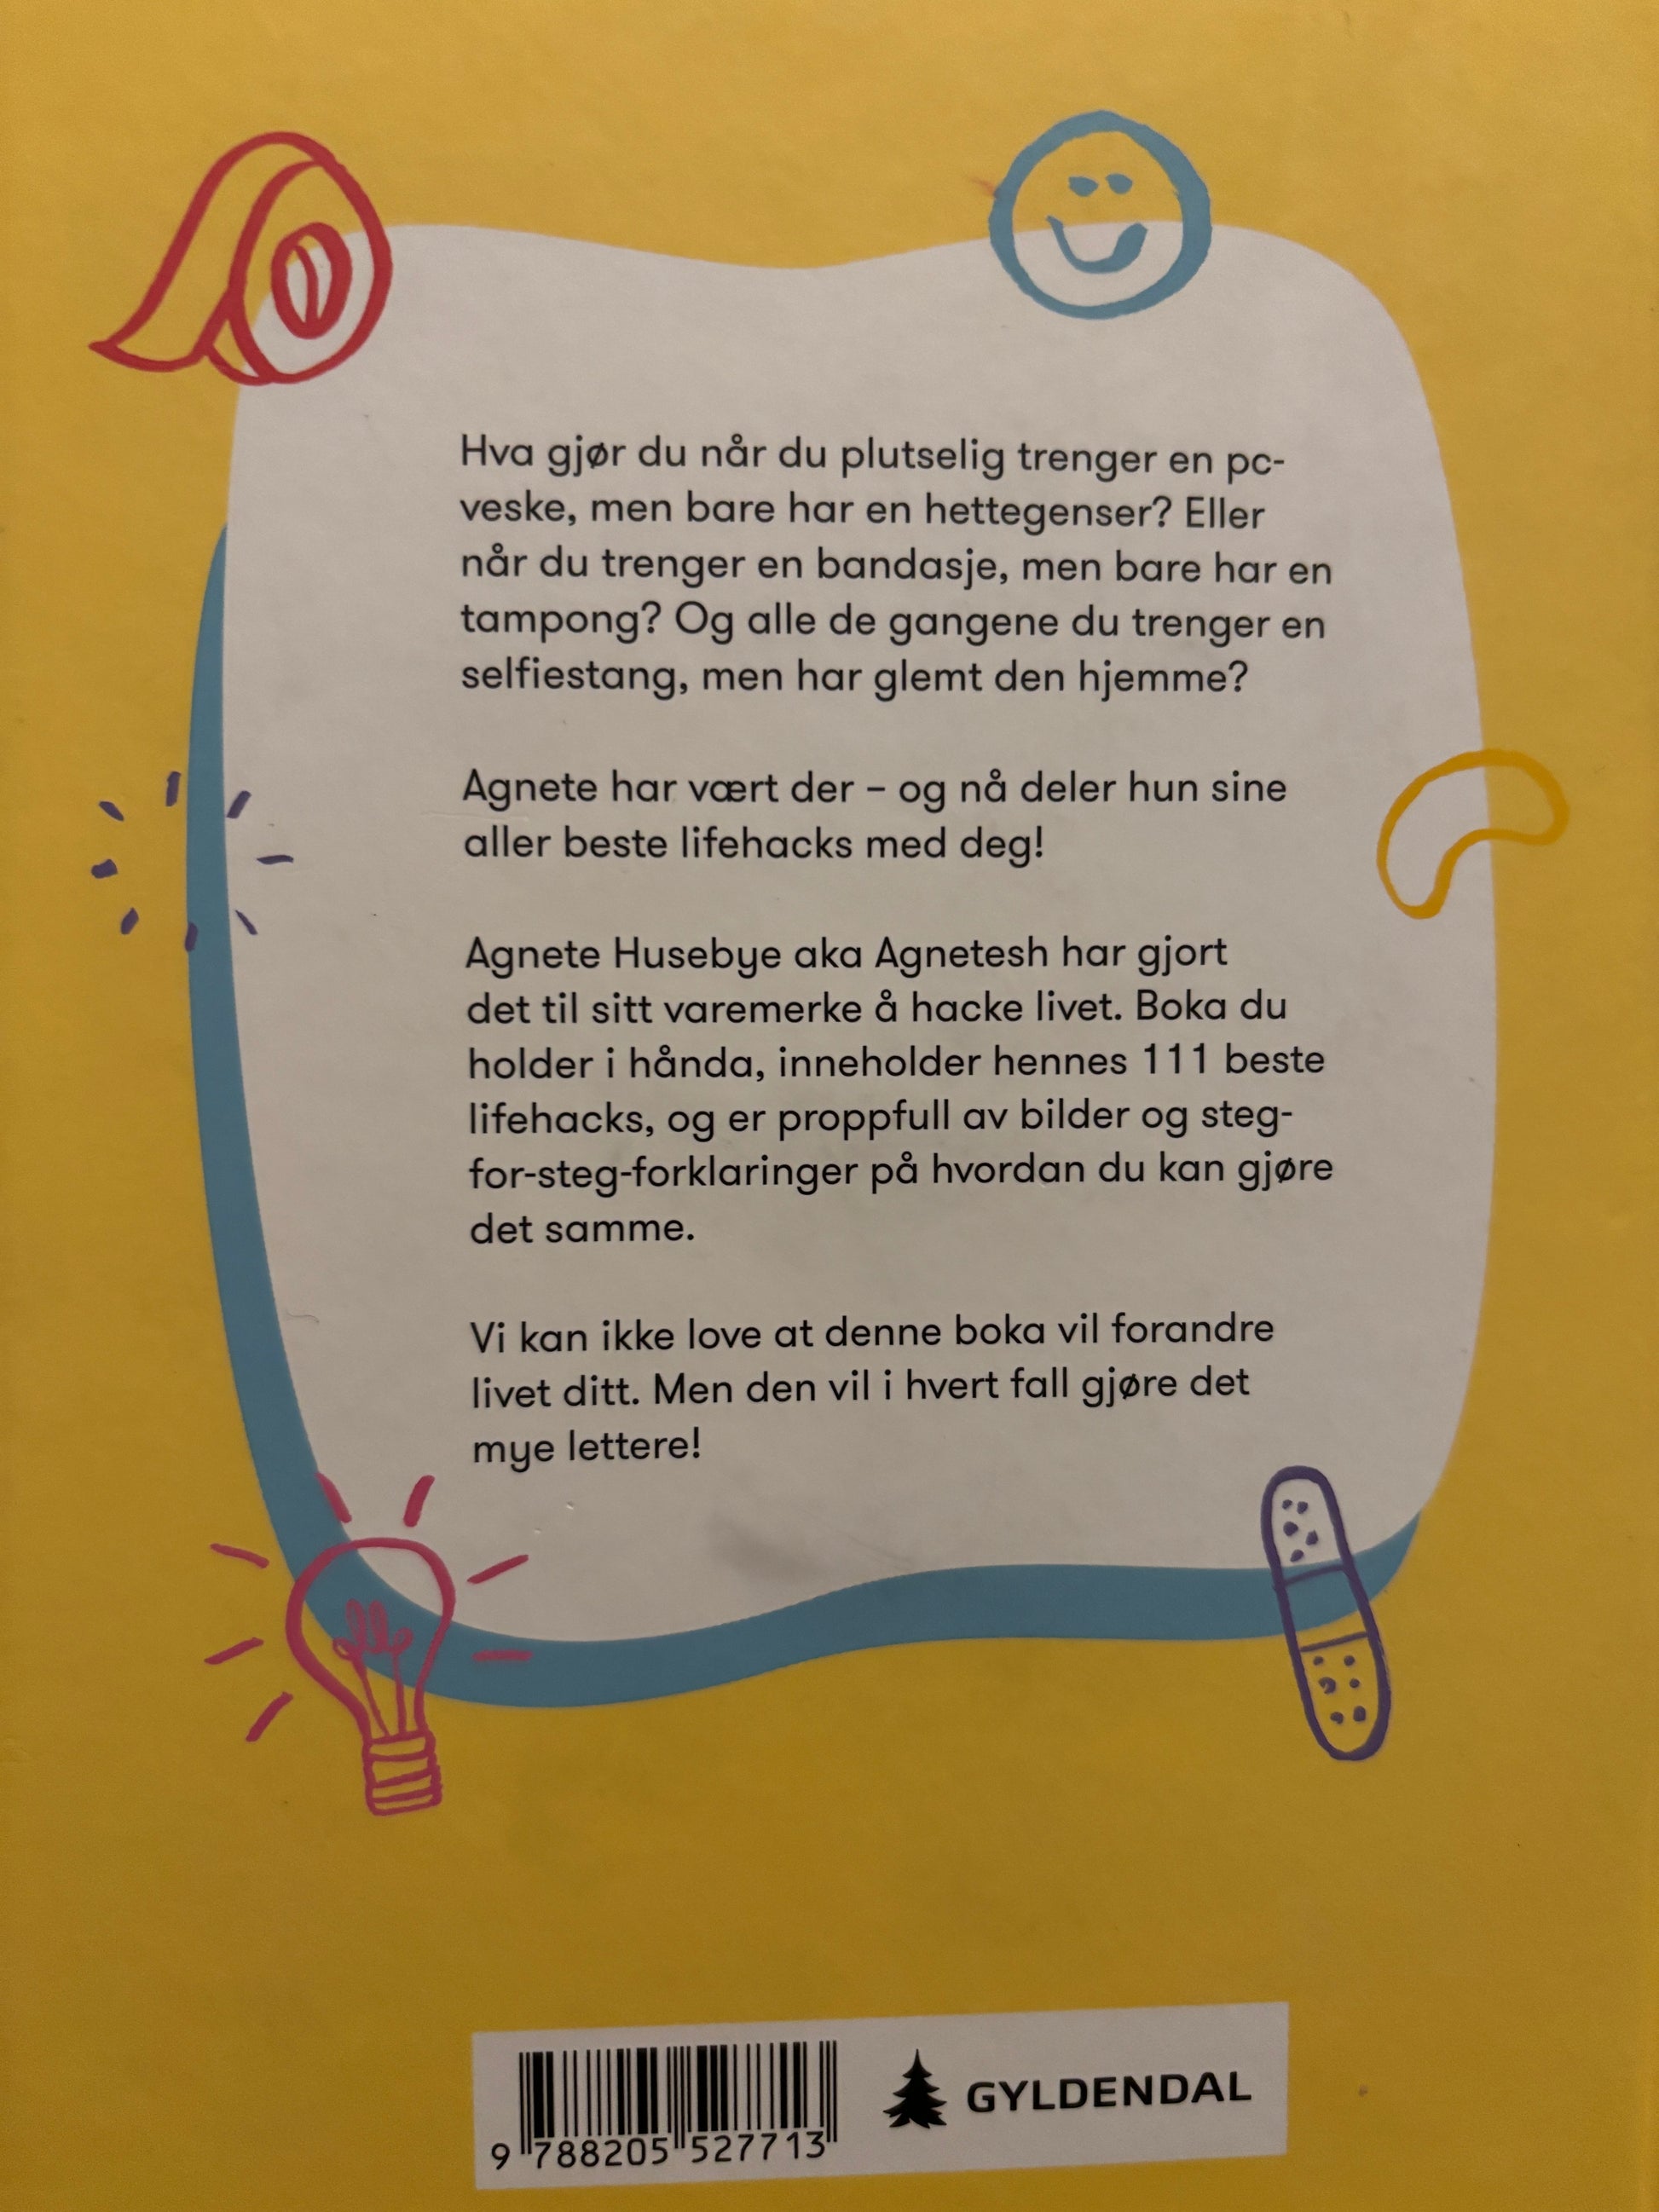 Hva gjør du når du plutselig trenger en pc-
veske, men bare har en hettegenser? Eller
når du trenger en bandasje, men bare har en
tampong? Og alle de gangene du trenger en
selfiestang, men har glemt den hjemme?
Agnete har vært der – og nå deler hun sine
aller beste lifehacks med deg!
Agnete Husebye aka Agnetesh har gjort
det til sitt varemerke å hacke livet. Boka du
holder i hånda, inneholder hennes 111 beste
lifehacks, og er proppfull av bilder og steg-
for-steg-forklaringer på hvordan du kan gjøre
det samme.
Vi kan ikke love at denne boka vil forandre
livet ditt. Men den vil i hvert fall gjøre det
mye lettere!
GYLDENDAL
9 788205 527713